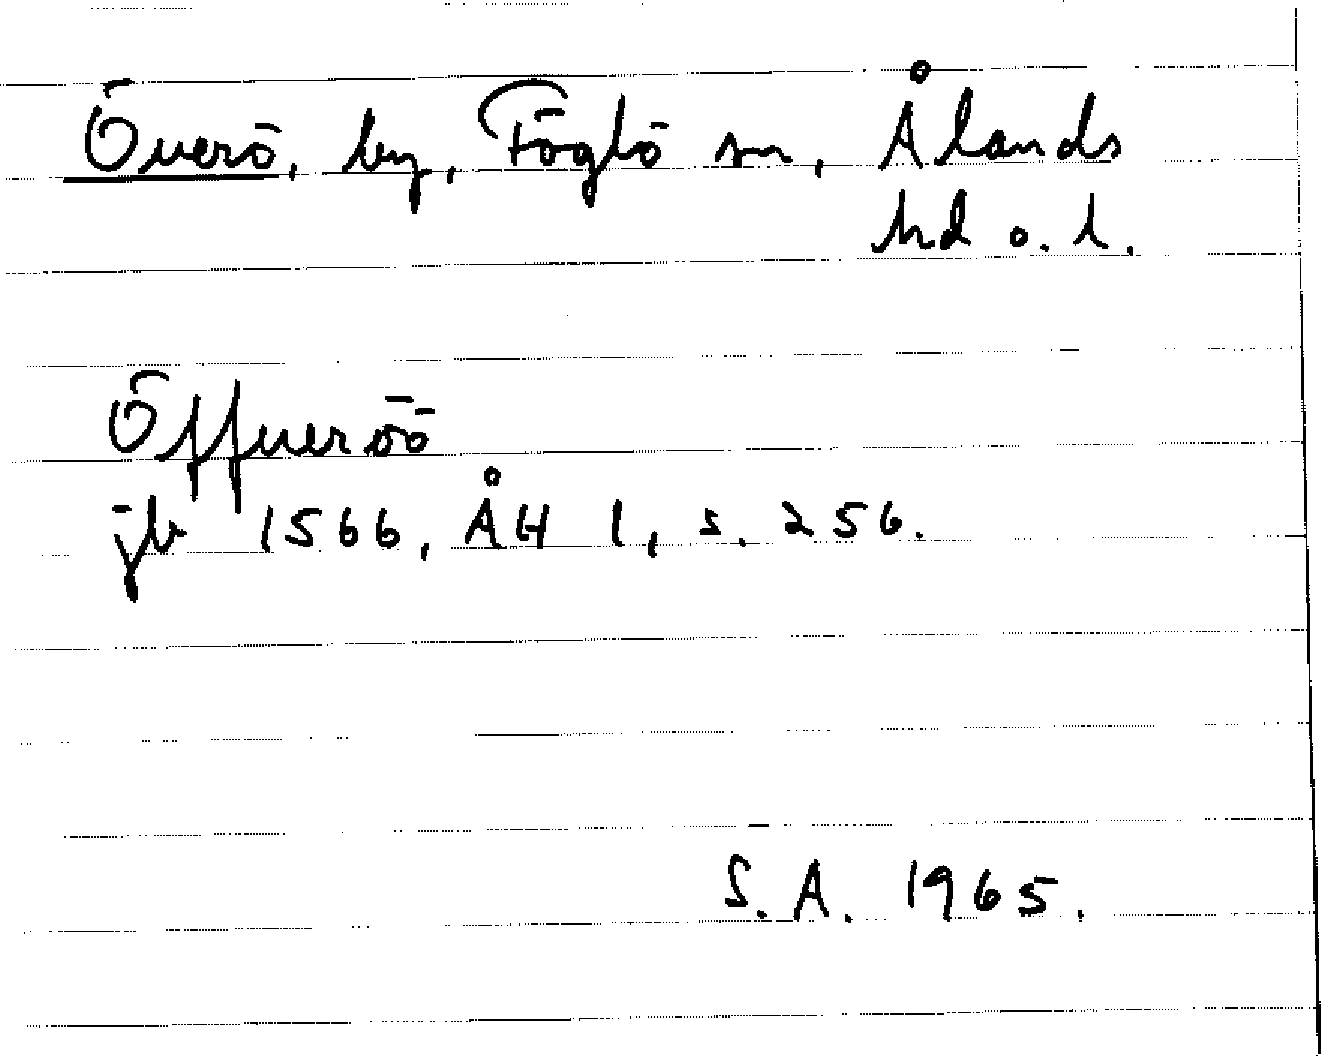 Överö, by, Föglö sn, Ålands
hd o. l.
Öffueröö
jb 1566, ÅH 1, s. 256.
S.A. 1965.